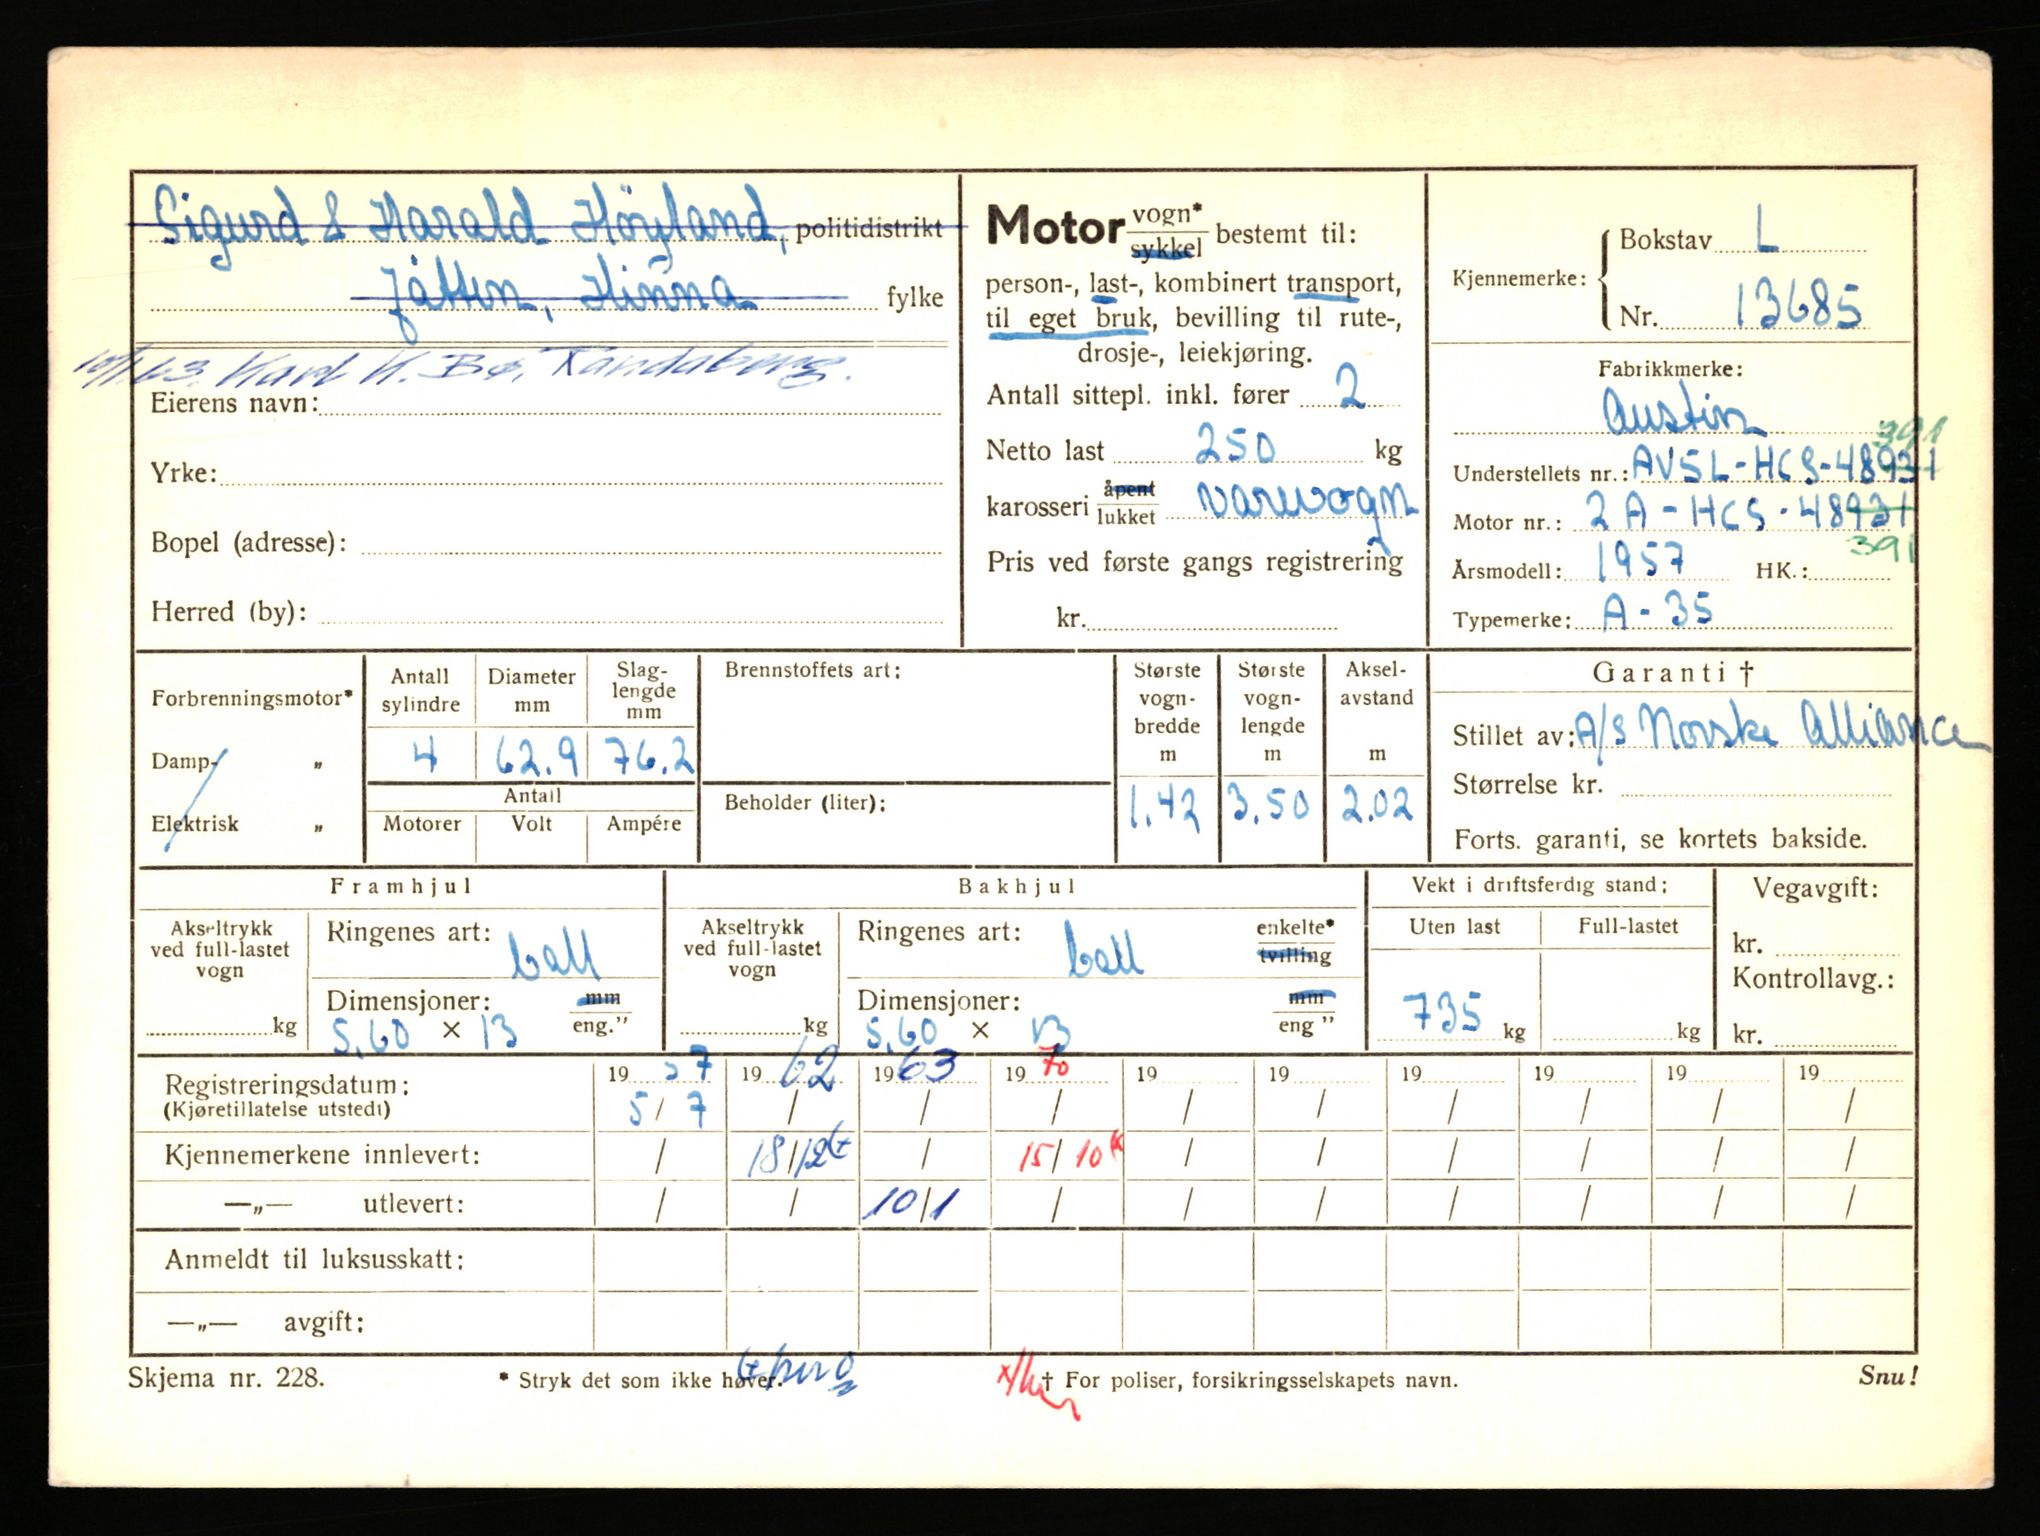 Sigurd & Harald Höyland, politidistrikt
Jåtten, Hinna fylke
10/1.63. Karl K. Bø, Randaberg.
Eierens navn:
Yrke:
Bopel (adresse):
Herred (by):
Motor vogn* sykkel bestemt til:
person-, last-, kombinert transport,
til eget bruk, bevilling til rute-,
drosje-, leiekjøring.
Antall sittepl. inkl. fører 2
Netto last 250 kg
karosseri åpent lukket varevogn
Pris ved første gangs registrering
kr.
Kjennemerke: Bokstav L
Nr. 13685
Fabrikkmerke:
Austin
391
Understellets nr.: AVSL-HCS-48931
Motor nr.: 2A-HCS-48931
391
Årsmodell: 1957 HK.:
Typemerke: A-35
Forbrenningsmotor*
Damp- „
Elektrisk „
Antall sylindre
Diameter mm
Slag-lengde mm
4 62.9 76.2
Antall
Motorer Volt Ampére
Brennstoffets art:
Beholder (liter):
Største vogn-bredde m
Største vogn-lengde m
Aksel-avstand m
1.42 3.50 2.02
Garanti †
Stillet av: A/S Norske Alliance
Størrelse kr.
Forts. garanti, se kortets bakside.
Framhjul
Akseltrykk ved full-lastet vogn
kg
Ringenes art: ball
Dimensjoner: mm
5.60 × 13 eng."
Bakhjul
Akseltrykk ved full-lastet vogn
kg
Ringenes art: ball enkelte* tvilling
Dimensjoner: mm
5.60 × 13 eng "
Vekt i driftsferdig stand:
Uten last Full-lastet
735 kg kg
Vegavgift:
kr.
Kontrollavg.:
kr.
Registreringsdatum: 1957 1962 1963 1970 19 19 19 19 19 19
(Kjøretillatelse utstedt) 5/7 / / / / / / / / /
Kjennemerkene innlevert: / 18/12 / 15/10 / / / / / /
—„— utlevert: / / 10/1 / / / / / / /
Anmeldt til luksusskatt:
—„— avgift:
Skjema nr. 228.
* Stryk det som ikke høver.
† For poliser, forsikringsselskapets navn.
Snu!